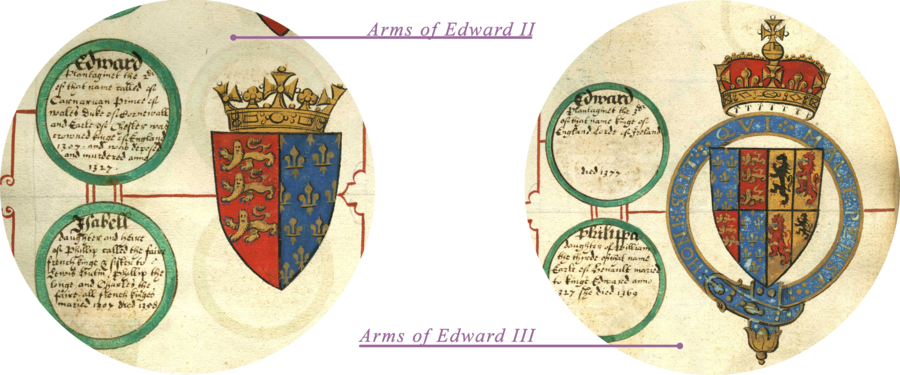 Arms of Edward II
Edward
Plantaginet the 2d
of that name called of
Carnarvan Prince of
wales Duke of Cornewall
and Earle of Chester was
crowned kinge of England
1307 and was deposed
and murdered anno
1327.
Isabell
daughter and heire
of Phillip called the faire
french kinge & sister to
Lewis Hutin, Phillip the
longe and Charles the
faire all french kinges
maried 1307 died 1358
Edward
Plantaginet the 3d
of that name kinge of
England Lorde of Ireland
died 1377
Philippa
daughter of William
the thirde of that name
Earle of Henault maried
to kinge Edward anno
1327 she died 1369
HONI SOIT QVI MAL Y PENSE
Arms of Edward III